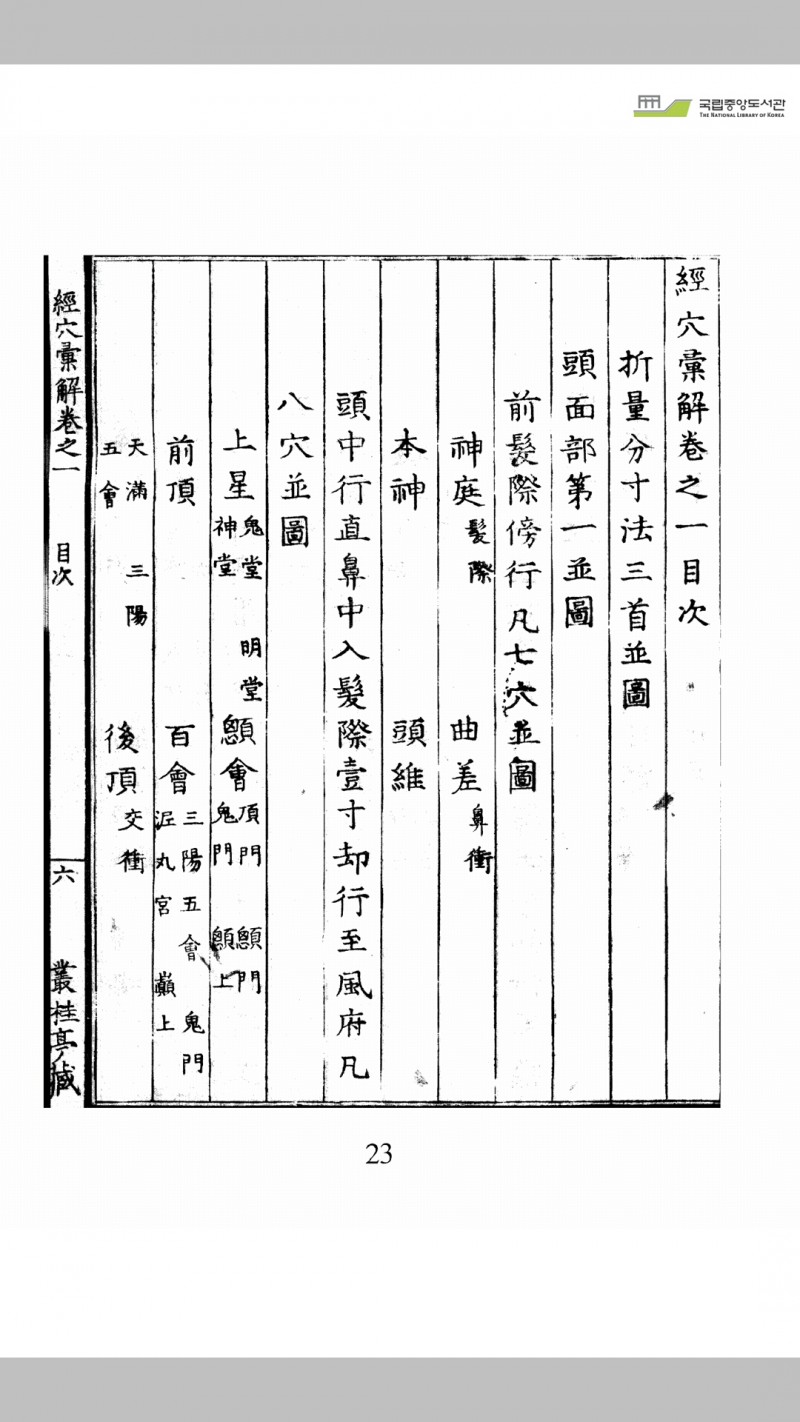 국립중앙도서관
THE NATIONAL LIBRARY OF KOREA
經穴彙解卷之一目次
折量分寸法三首並圖
頭面部第一並圖
前髮際傍行凡七穴並圖
神庭 髮際 曲差 鼻衝
本神 頭維
頭中行直鼻中入髮際壹寸却行至風府凡
八穴並圖
上星 鬼堂 明堂 神堂 顖會 頂門 顖門 鬼門 顖上
前頂 百會 三陽五會 鬼門 泥丸宮 巔上
天滿 三陽 五會 後頂 交衝
經穴彙解卷之一 目次 六 叢桂亭藏
23